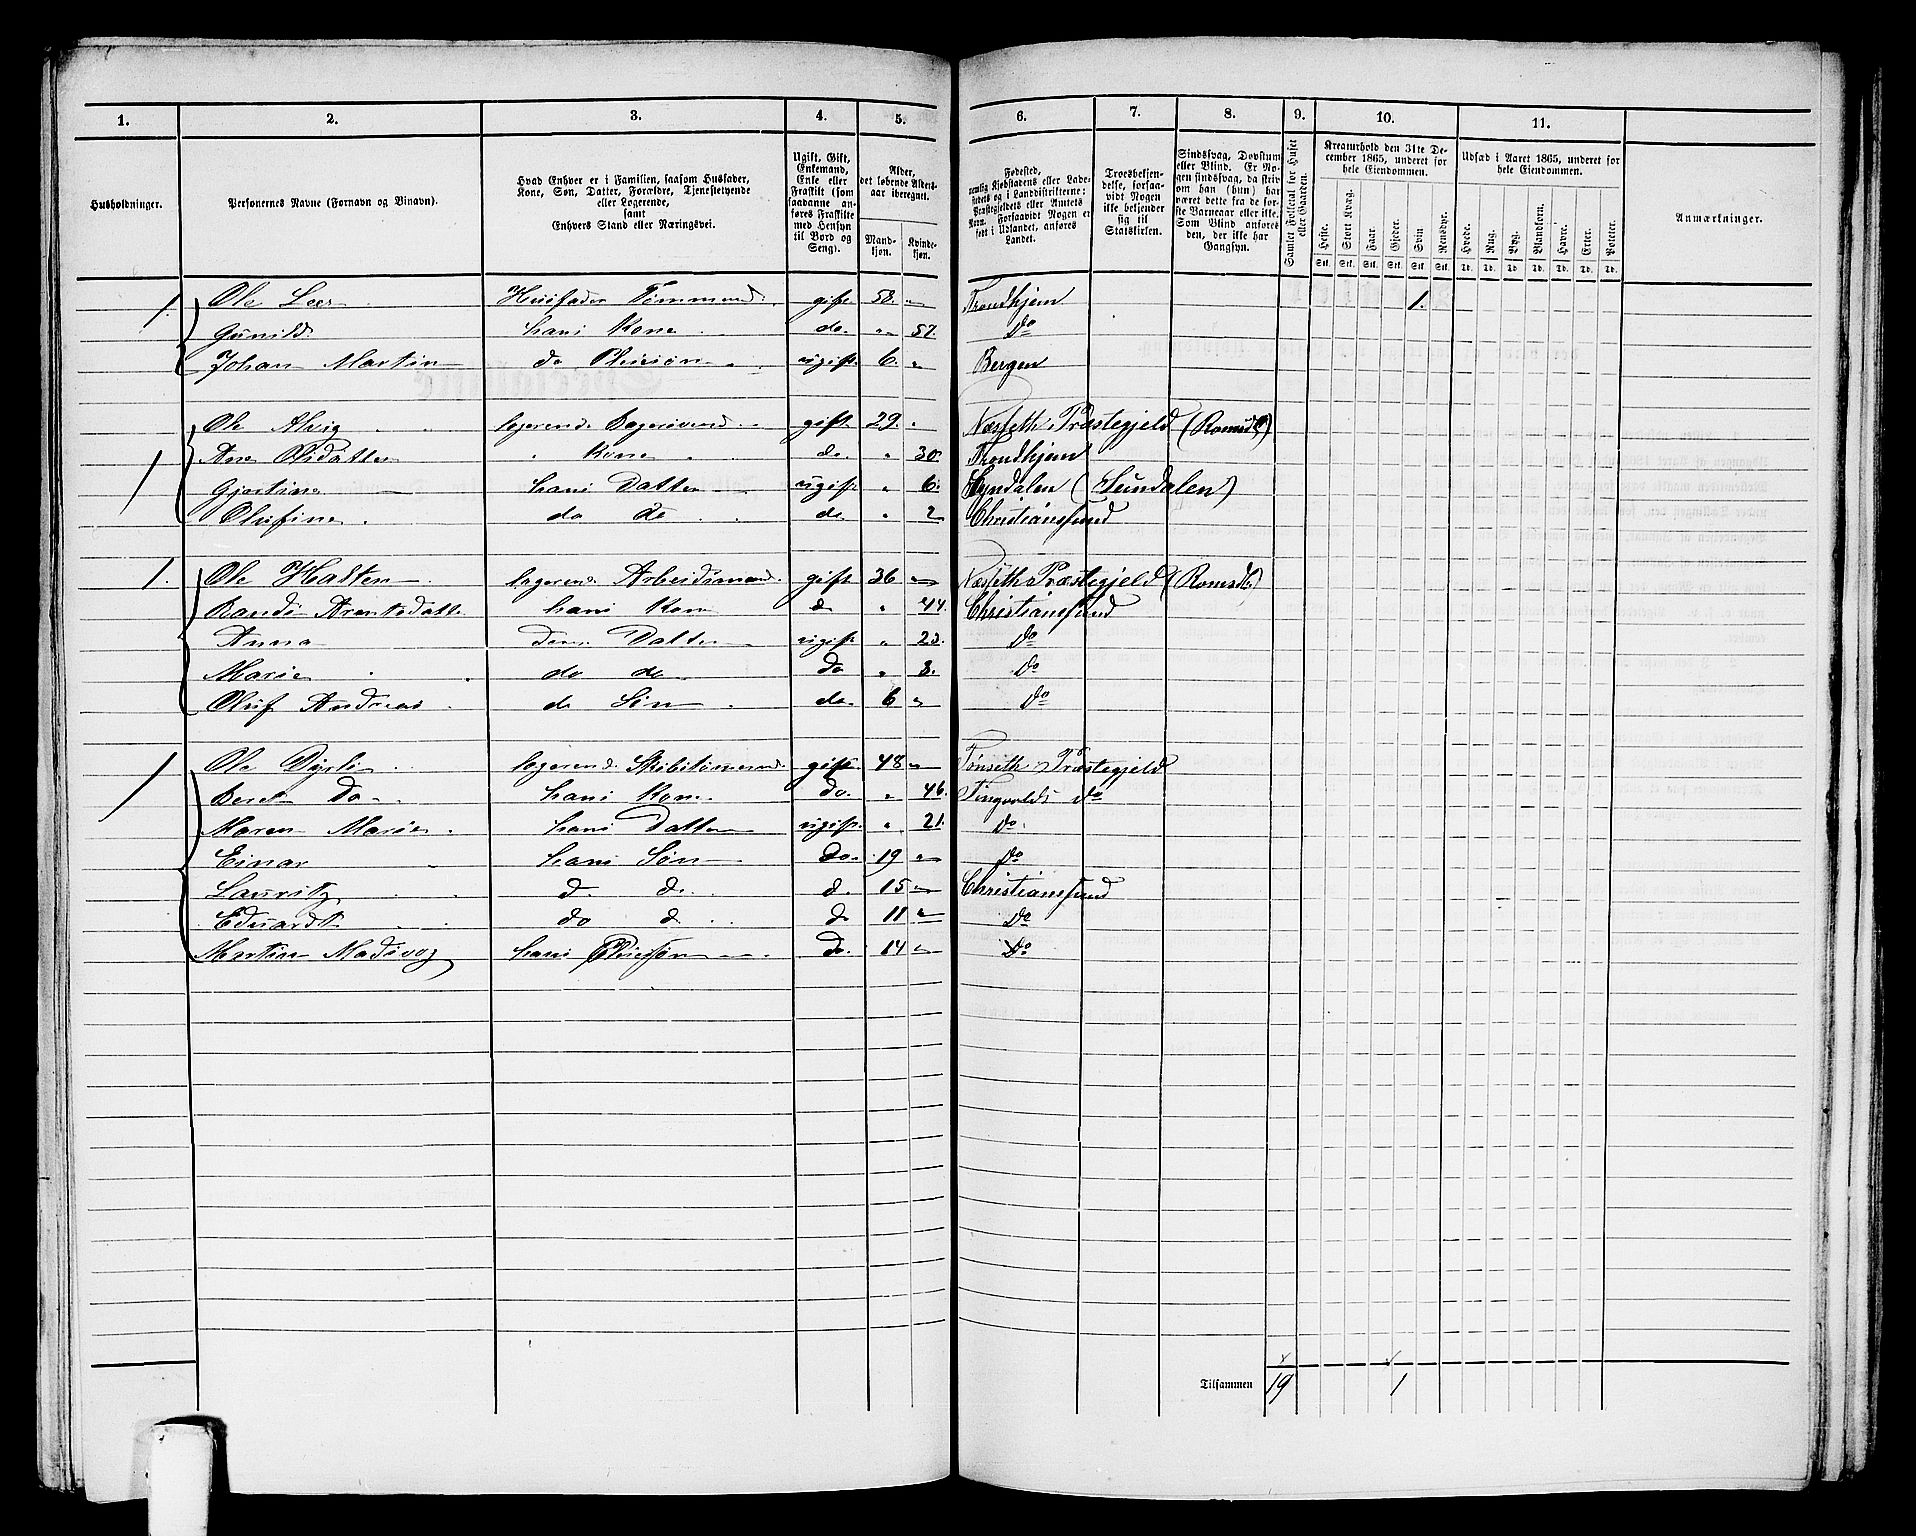 1. 2. 3. 4. 5. 6. 7. 8. 9. 10. 11.
Husholdninger.
Personernes Navne (Fornavn og Binavn).
Hvad Enhver er i Familien, saasom Husfader,
Kone, Søn, Datter, Forældre, Tjenestetyende
eller Logerende,
samt
Enhvers Stand eller Næringsvei.
Ugift, Gift,
Enkemand,
Enke eller
Fraskilt (som
saadanne an-
føres Fraskilte
med Hensyn
til Bord og
Seng).
Alder,
det løbende Alders-
aar iberegnet.
Mand-
kjøn.
Kvinde-
kjøn.
Fødested,
nemlig Kjøbstadens eller Lade-
stedets og i Landdistrikterne:
Præstegjeldets eller Amtets
Navn. Forsaavidt Nogen er
født i Udlandet, anføres
Landet.
Troesbekjen-
delse, forsaa-
vidt Nogen
ikke bekjender
sig til
Statskirken.
Sindssvag, Døvstum
eller Blind. Er No-
gen sindssvag, da skriv
om han (hun) har
været dette fra de før-
ste Barneaar eller ikke.
Som Blind anføres
den, der ikke har
Gangsyn.
Samlet Folketal for Huset
eller Gaarden.
Kreaturhold den 31te De-
cember 1865, underet for
hele Eiendommen.
Heste. Stort Kvæg. Faar. Gjeder. Svin. Rensdyr.
Stk. Stk. Stk. Stk. Stk. Stk.
Udsæd i Aaret 1865, underet for
hele Eiendommen.
Hvede. Rug. Byg. Blandkorn. Havre. Erter. Poteter.
Td. Td. Td. Td. Td. Td. Td.
Anmærkninger.
1. Ole Husfader gift 58. " Trondhjem 1.
Gunild hans Kone do. " 57. Do
Johan Martin do Pleiesøn ugift. 6. " Bergen
1 Ole Alvig logerend gift 29. " Næsseth Præstegjeld (Romsd)
Ane Olsdatter " Kone " do " 30. Trondhjem
hans Datter ugift " 6. (Sundalen)
Olufine. do do do " 2 Christianssund
1. Ole Halten logerend. Arbeidsmand gift 36 " Næsseth Præstegjeld (Romsd)
hans Kone do " 44. Christianssund
Anna Datter ugift " 23. Do
Marie do do Do " 8. Do
Oluf Andreas do Søn do. 6 " Do
1 Ole logerend gift. 48 " Præstegjeld
Beret Do hans Kone Do. " 46. Tingvolds do
Maren Marie hans Datter ugift. " 21. Do.
Einar hans Søn Do. 19 " Do
Lauritz d. d. d. 15 " Christianssund
Eduardt do d d. 11 " Do
Martin hans Pleiesøn Do. 14 " Do
Tilsammen 19 1